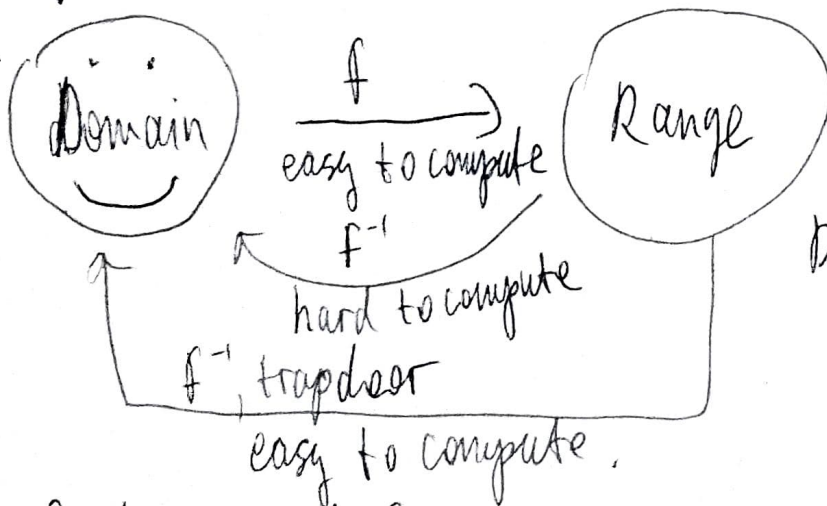 Domain
f
easy to compute
Range
f⁻¹
hard to compute
f⁻¹, trapdoor
easy to compute.